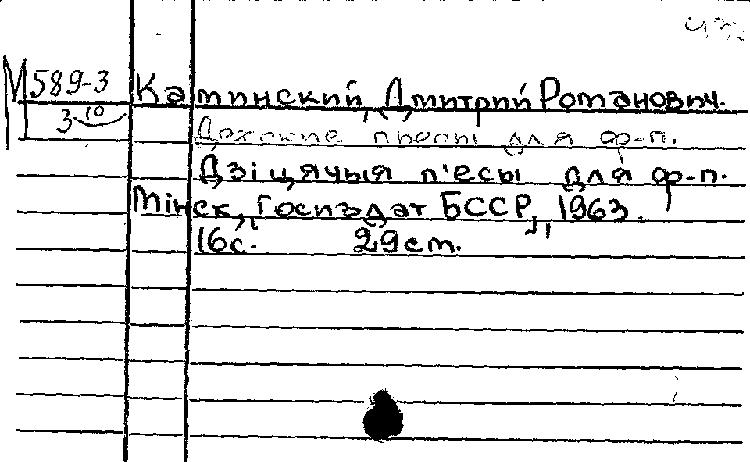 М 589-3
3 10
Каминский, Дмитрий Романович.
Детские пьесы для ф-п.
Дзіцячыя п'есы для ф-п.
Мінск, "Госиздат БССР", 1963.
16с. 29см.